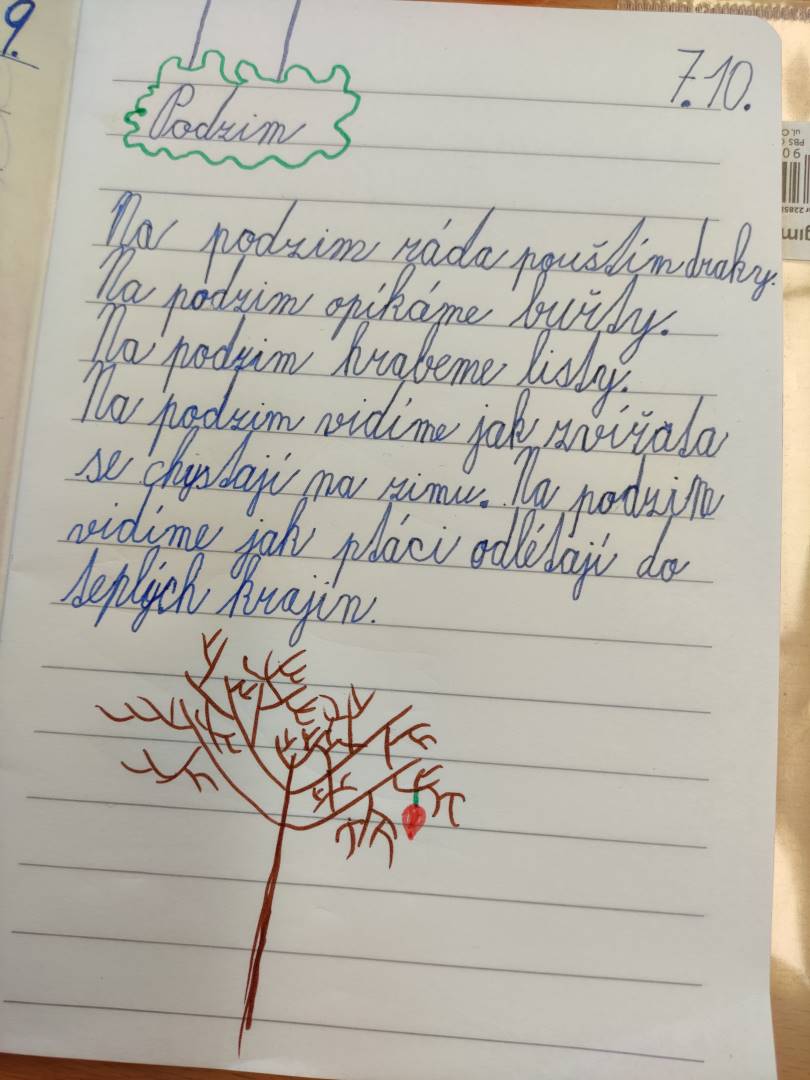 9.
7.10.
Podzim
Na podzim ráda pouštím draky.
Na podzim opíkáme buřty.
Na podzim hrabeme listy.
Na podzim vidíme jak zvířata
se chystají na zimu. Na podzim
vidíme jak ptáci odlétají do
teplých krajin.